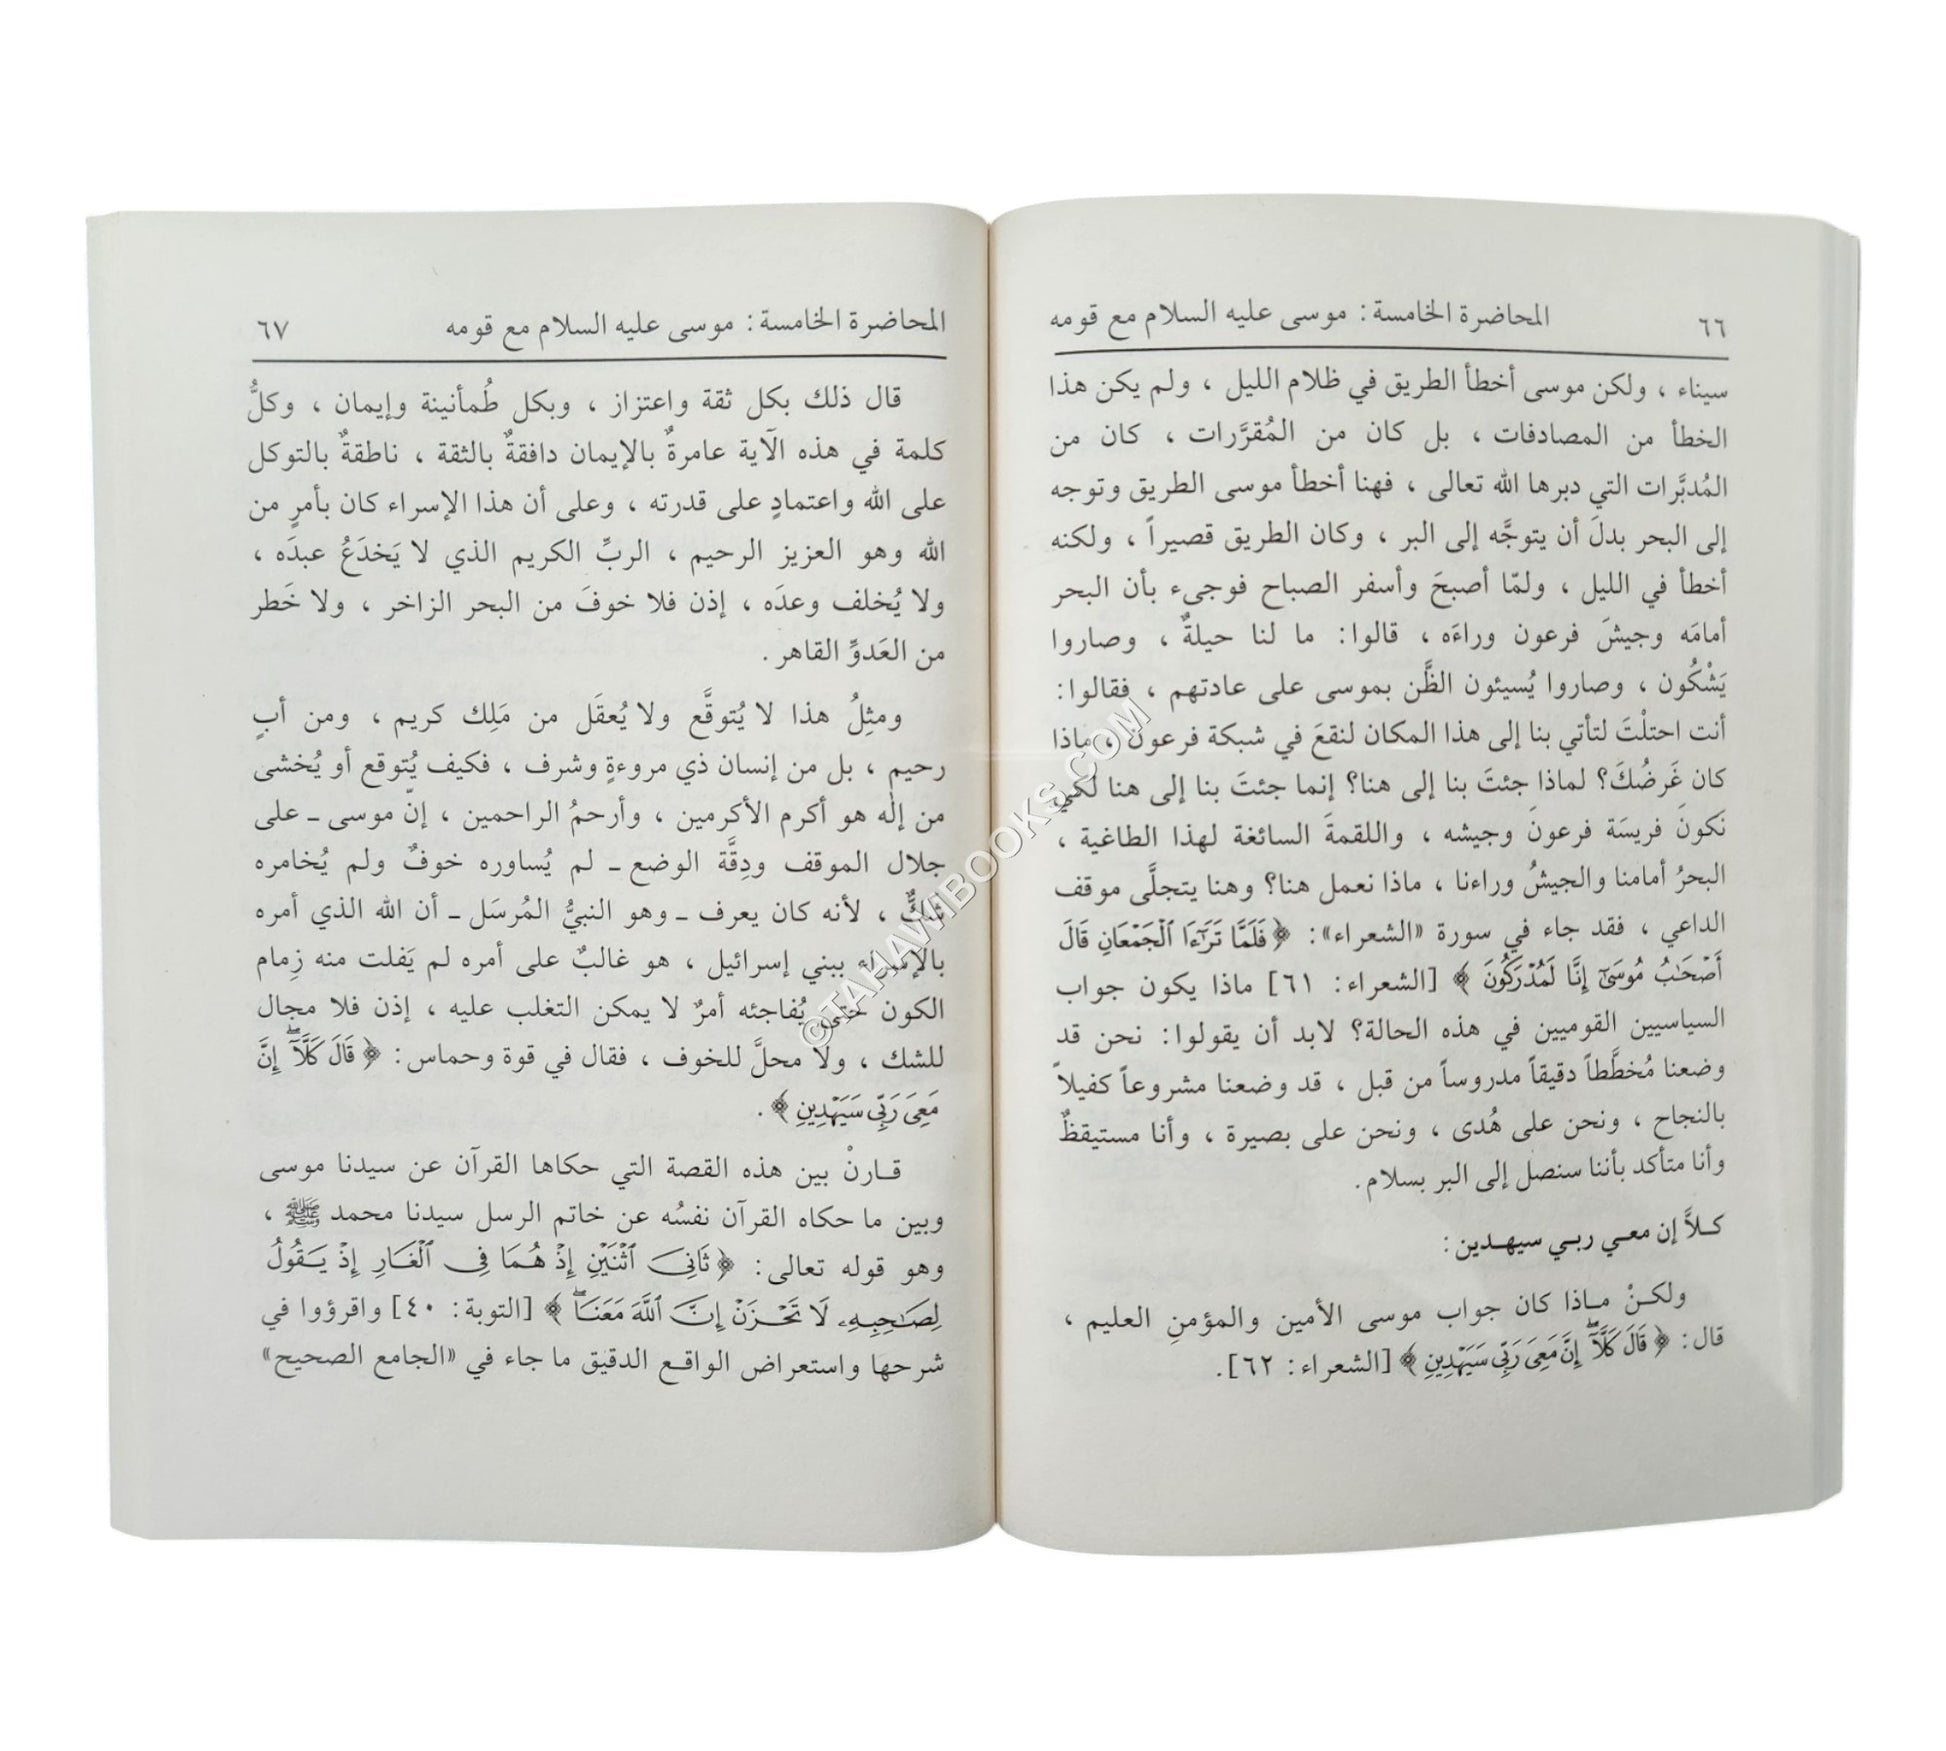 ٦٦ المحاضرة الخامسة: موسى عليه السلام مع قومه
سيناء ، ولكن موسى أخطأ الطريق في ظلام الليل ، ولم يكن هذا
الخطأ من المصادفات ، بل كان من المُقرَّرات ، كان من
المُدبَّرات التي دبرها الله تعالى ، فهنا أخطأ موسى الطريق وتوجه
إلى البحر بدلَ أن يتوجَّه إلى البر ، وكان الطريق قصيراً ، ولكنه
أخطأ في الليل ، ولمّا أصبحَ وأسفر الصباح فوجىء بأن البحر
أمامَه وجيشَ فرعون وراءَه ، قالوا: ما لنا حيلةٌ ، وصاروا
يَشْكُون ، وصاروا يُسيئون الظَّن بموسى على عادتهم ، فقالوا:
أنت احتلْتَ لتأتي بنا إلى هذا المكان لنقعَ في شبكة فرعون ، ماذا
كان غَرضُكَ؟ لماذا جئتَ بنا إلى هنا؟ إنما جئتَ بنا إلى هنا لكي
نَكونَ فريسَة فرعونَ وجيشه ، واللقمةَ السائغة لهذا الطاغية ،
البحرُ أمامنا والجيشُ وراءنا ، ماذا نعمل هنا؟ وهنا يتجلَّى موقف
الداعي ، فقد جاء في سورة «الشعراء»: ﴿ فَلَمَّا تَرَٰٓءَا ٱلْجَمْعَانِ قَالَ
أَصْحَٰبُ مُوسَىٰٓ إِنَّا لَمُدْرَكُونَ ﴾ [الشعراء: ٦١] ماذا يكون جواب
السياسيين القوميين في هذه الحالة؟ لابد أن يقولوا: نحن قد
وضعنا مُخطَّطاً دقيقاً مدروساً من قبل ، قد وضعنا مشروعاً كفيلاً
بالنجاح ، ونحن على هُدى ، ونحن على بصيرة ، وأنا مستيقظٌ
وأنا متأكد بأننا سنصل إلى البر بسلام.
كلاَّ إن معي ربي سيهدين:
ولكنْ ماذا كان جواب موسى الأمين والمؤمنِ العليم ،
قال: ﴿ قَالَ كَلَّآ ۖ إِنَّ مَعِىَ رَبِّى سَيَهْدِينِ ﴾ [الشعراء: ٦٢].
المحاضرة الخامسة: موسى عليه السلام مع قومه ٦٧
قال ذلك بكل ثقة واعتزاز ، وبكل طُمأنينة وإيمان ، وكلُّ
كلمة في هذه الآية عامرةٌ بالإيمان دافقةٌ بالثقة ، ناطقةٌ بالتوكل
على الله واعتمادٍ على قدرته ، وعلى أن هذا الإسراء كان بأمرٍ من
الله وهو العزيز الرحيم ، الربِّ الكريم الذي لا يَخدَعُ عبدَه ،
ولا يُخلف وعدَه ، إذن فلا خوفَ من البحر الزاخر ، ولا خَطر
من العَدوِّ القاهر .
ومثِلُ هذا لا يُتوقَّع ولا يُعقَل من مَلِك كريم ، ومن أبٍ
رحيمٍ ، بل من إنسان ذي مروءةٍ وشرف ، فكيف يُتوقع أو يُخشى
من إلٰه هو أكرم الأكرمين ، وأرحمُ الراحمين ، إنّ موسى ـ على
جلال الموقف ودِقَّة الوضع ـ لم يُساوره خوفٌ ولم يُخامره
شكٌّ ، لأنه كان يعرف ـ وهو النبيُّ المُرسَل ـ أن الله الذي أمره
بالإسراء ببني إسرائيل ، هو غالبٌ على أمره لم يَفلت منه زِمام
الكون حتى يُفاجئه أمرٌ لا يمكن التغلب عليه ، إذن فلا مجال
للشك ، ولا محلَّ للخوف ، فقال في قوة وحماس: ﴿ قَالَ كَلَّآ ۖ إِنَّ
مَعِىَ رَبِّى سَيَهْدِينِ ﴾ .
قارنْ بين هذه القصة التي حكاها القرآن عن سيدنا موسى
وبين ما حكاه القرآن نفسُه عن خاتم الرسل سيدنا محمد ﷺ ،
وهو قوله تعالى: ﴿ ثَانِىَ ٱثْنَيْنِ إِذْ هُمَا فِى ٱلْغَارِ إِذْ يَقُولُ
لِصَٰحِبِهِۦ لَا تَحْزَنْ إِنَّ ٱللَّهَ مَعَنَا ۖ ﴾ [التوبة: ٤٠] واقرؤوا في
شرحها واستعراض الواقع الدقيق ما جاء في «الجامع الصحيح»
©TAHAWIBOOKS.COM